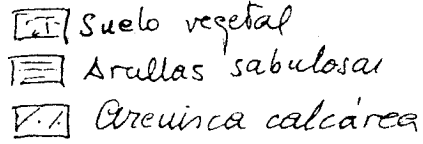 Suelo vegetal
Arcillas sabulosas
Arenisca calcárea